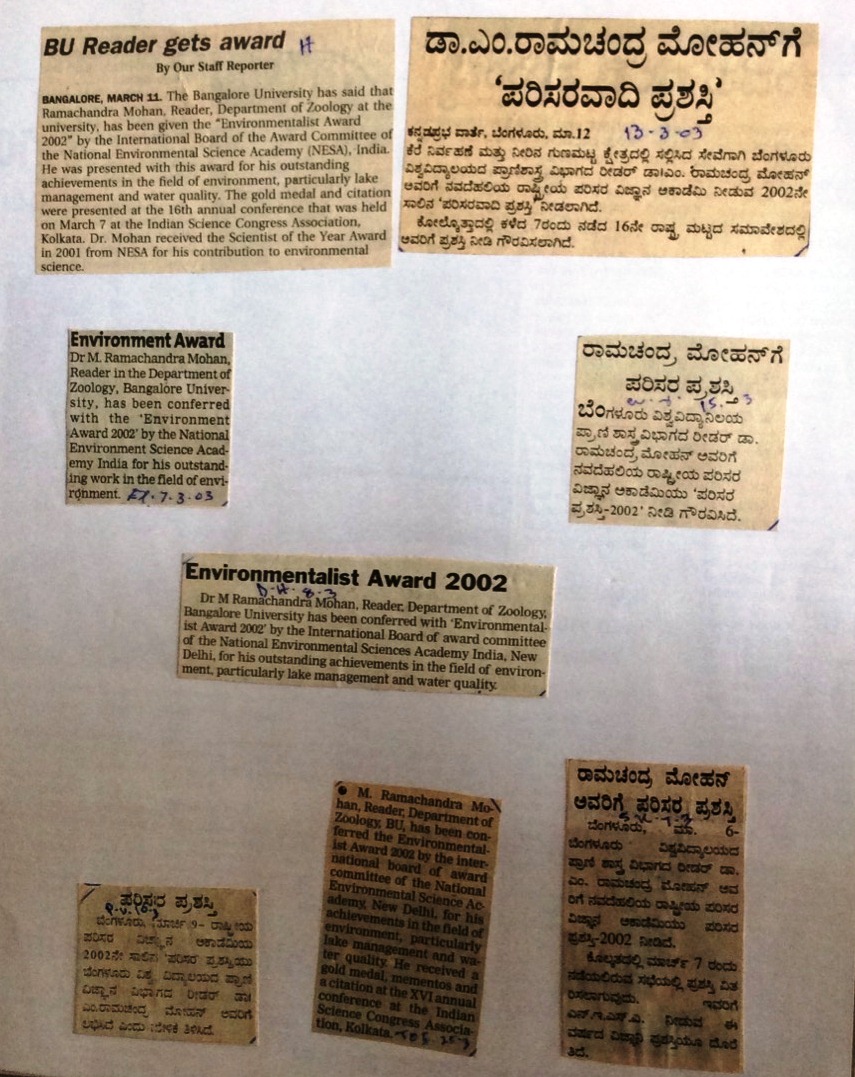 BU Reader gets award H
By Our Staff Reporter
BANGALORE, MARCH 11. The Bangalore University has said that
Ramachandra Mohan, Reader, Department of Zoology at the
university, has been given the "Environmentalist Award
2002" by the International Board of the Award Committee of
the National Environmental Science Academy (NESA), India.
He was presented with this award for his outstanding
achievements in the field of environment, particularly lake
management and water quality. The gold medal and citation
were presented at the 16th annual conference that was held
on March 7 at the Indian Science Congress Association,
Kolkata. Dr. Mohan received the Scientist of the Year Award
in 2001 from NESA for his contribution to environmental
science.
ಡಾ.ಎಂ.ರಾಮಚಂದ್ರ ಮೋಹನ್‌ಗೆ
‘ಪರಿಸರವಾದಿ ಪ್ರಶಸ್ತಿ’
ಕನ್ನಡಪ್ರಭ ವಾರ್ತೆ, ಬೆಂಗಳೂರು, ಮಾ.12 13-3-03
ಕೆರೆ ನಿರ್ವಹಣೆ ಮತ್ತು ನೀರಿನ ಗುಣಮಟ್ಟ ಕ್ಷೇತ್ರದಲ್ಲಿ ಸಲ್ಲಿಸಿದ ಸೇವೆಗಾಗಿ ಬೆಂಗಳೂರು
ವಿಶ್ವವಿದ್ಯಾಲಯದ ಪ್ರಾಣಿಶಾಸ್ತ್ರ ವಿಭಾಗದ ರೀಡರ್ ಡಾ।ಎಂ. ರಾಮಚಂದ್ರ ಮೋಹನ್
ಅವರಿಗೆ ನವದೆಹಲಿಯ ರಾಷ್ಟ್ರೀಯ ಪರಿಸರ ವಿಜ್ಞಾನ ಅಕಾಡೆಮಿ ನೀಡುವ 2002ನೇ
ಸಾಲಿನ ‘ಪರಿಸರವಾದಿ ಪ್ರಶಸ್ತಿ’ ನೀಡಲಾಗಿದೆ.
ಕೋಲ್ಕೊತ್ತಾದಲ್ಲಿ ಕಳೆದ 7ರಂದು ನಡೆದ 16ನೇ ರಾಷ್ಟ್ರ ಮಟ್ಟದ ಸಮಾವೇಶದಲ್ಲಿ
ಅವರಿಗೆ ಪ್ರಶಸ್ತಿ ನೀಡಿ ಗೌರವಿಸಲಾಗಿದೆ.
Environment Award
Dr M. Ramachandra Mohan,
Reader in the Department of
Zoology, Bangalore Univer-
sity, has been conferred
with the 'Environment
Award 2002' by the National
Environment Science Acad-
emy India for his outstand-
ing work in the field of envi-
ronment. 7-3-03
ರಾಮಚಂದ್ರ ಮೋಹನ್‌ಗೆ
ಪರಿಸರ ಪ್ರಶಸ್ತಿ
ಬೆಂಗಳೂರು ವಿಶ್ವವಿದ್ಯಾನಿಲಯ
ಪ್ರಾಣಿ ಶಾಸ್ತ್ರ ವಿಭಾಗದ ರೀಡರ್ ಡಾ.
ರಾಮಚಂದ್ರ ಮೋಹನ್ ಅವರಿಗೆ
ನವದೆಹಲಿಯ ರಾಷ್ಟ್ರೀಯ ಪರಿಸರ
ವಿಜ್ಞಾನ ಅಕಾಡೆಮಿಯು ‘ಪರಿಸರ
ಪ್ರಶಸ್ತಿ-2002’ ನೀಡಿ ಗೌರವಿಸಿದೆ.
Environmentalist Award 2002
D-H-8-3
Dr M Ramachandra Mohan, Reader, Department of Zoology,
Bangalore University has been conferred with 'Environmental-
ist Award 2002' by the International Board of award committee
of the National Environmental Sciences Academy India, New
Delhi, for his outstanding achievements in the field of environ-
ment, particularly lake management and water quality.
ಪರಿಸರ ಪ್ರಶಸ್ತಿ
ಬೆಂಗಳೂರು, ಮಾರ್ಚಿ 9– ರಾಷ್ಟ್ರೀಯ
ಪರಿಸರ ವಿಜ್ಞಾನ ಅಕಾಡೆಮಿಯ
2002ನೇ ಸಾಲಿನ ‘ಪರಿಸರ ಪ್ರಶಸ್ತಿಯು
ಬೆಂಗಳೂರು ವಿಶ್ವ ವಿದ್ಯಾಲಯದ ಪ್ರಾಣಿ
ವಿಜ್ಞಾನ ವಿಭಾಗದ ರೀಡರ್ ಡಾ।
ಎಂ.ರಾಮಚಂದ್ರ ಮೋಹನ್ ಅವರಿಗೆ
ಲಭಿಸಿದೆ ಎಂದು ತಿಳಿಸಿದೆ.
● M. Ramachandra Mo-
han, Reader, Department of
Zoology, BU, has been con-
ferred the Environmental-
ist Award 2002 by the inter-
national board of award
committee of the National
Environmental Science Ac-
ademy, New Delhi, for his
achievements in the field of
environment, particularly
lake management and wa-
ter quality. He received a
gold medal, mementos and
a citation at the XVI annual
conference at the Indian
Science Congress Associa-
tion, Kolkata.
ರಾಮಚಂದ್ರ ಮೋಹನ್
ಅವರಿಗೆ ಪರಿಸರ ಪ್ರಶಸ್ತಿ
ಬೆಂಗಳೂರು, ಮಾ. 6-
ಬೆಂಗಳೂರು ವಿಶ್ವವಿದ್ಯಾಲಯದ
ಪ್ರಾಣಿ ಶಾಸ್ತ್ರ ವಿಭಾಗದ ರೀಡರ್ ಡಾ.
ಎಂ. ರಾಮಚಂದ್ರ ಮೋಹನ್ ಅವ
ರಿಗೆ ನವದೆಹಲಿಯ ರಾಷ್ಟ್ರೀಯ ಪರಿಸರ
ವಿಜ್ಞಾನ ಅಕಾಡೆಮಿಯು ಪರಿಸರ
ಪ್ರಶಸ್ತಿ-2002 ನೀಡಿದೆ.
ಕೊಲ್ಕತದಲ್ಲಿ ಮಾರ್ಚ್ 7 ರಂದು
ನಡೆಯಲಿರುವ ಸಭೆಯಲ್ಲಿ ಪ್ರಶಸ್ತಿ ವಿತ
ರಿಸಲಾಗುವುದು. ಇವರಿಗೆ
ಎನ್.ಇ.ಎಸ್.ಎ. ನೀಡುವ ಈ
ವರ್ಷದ ವಿಜ್ಞಾನಿ ಪ್ರಶಸ್ತಿಯೂ ದೊರೆ
ತಿದೆ.